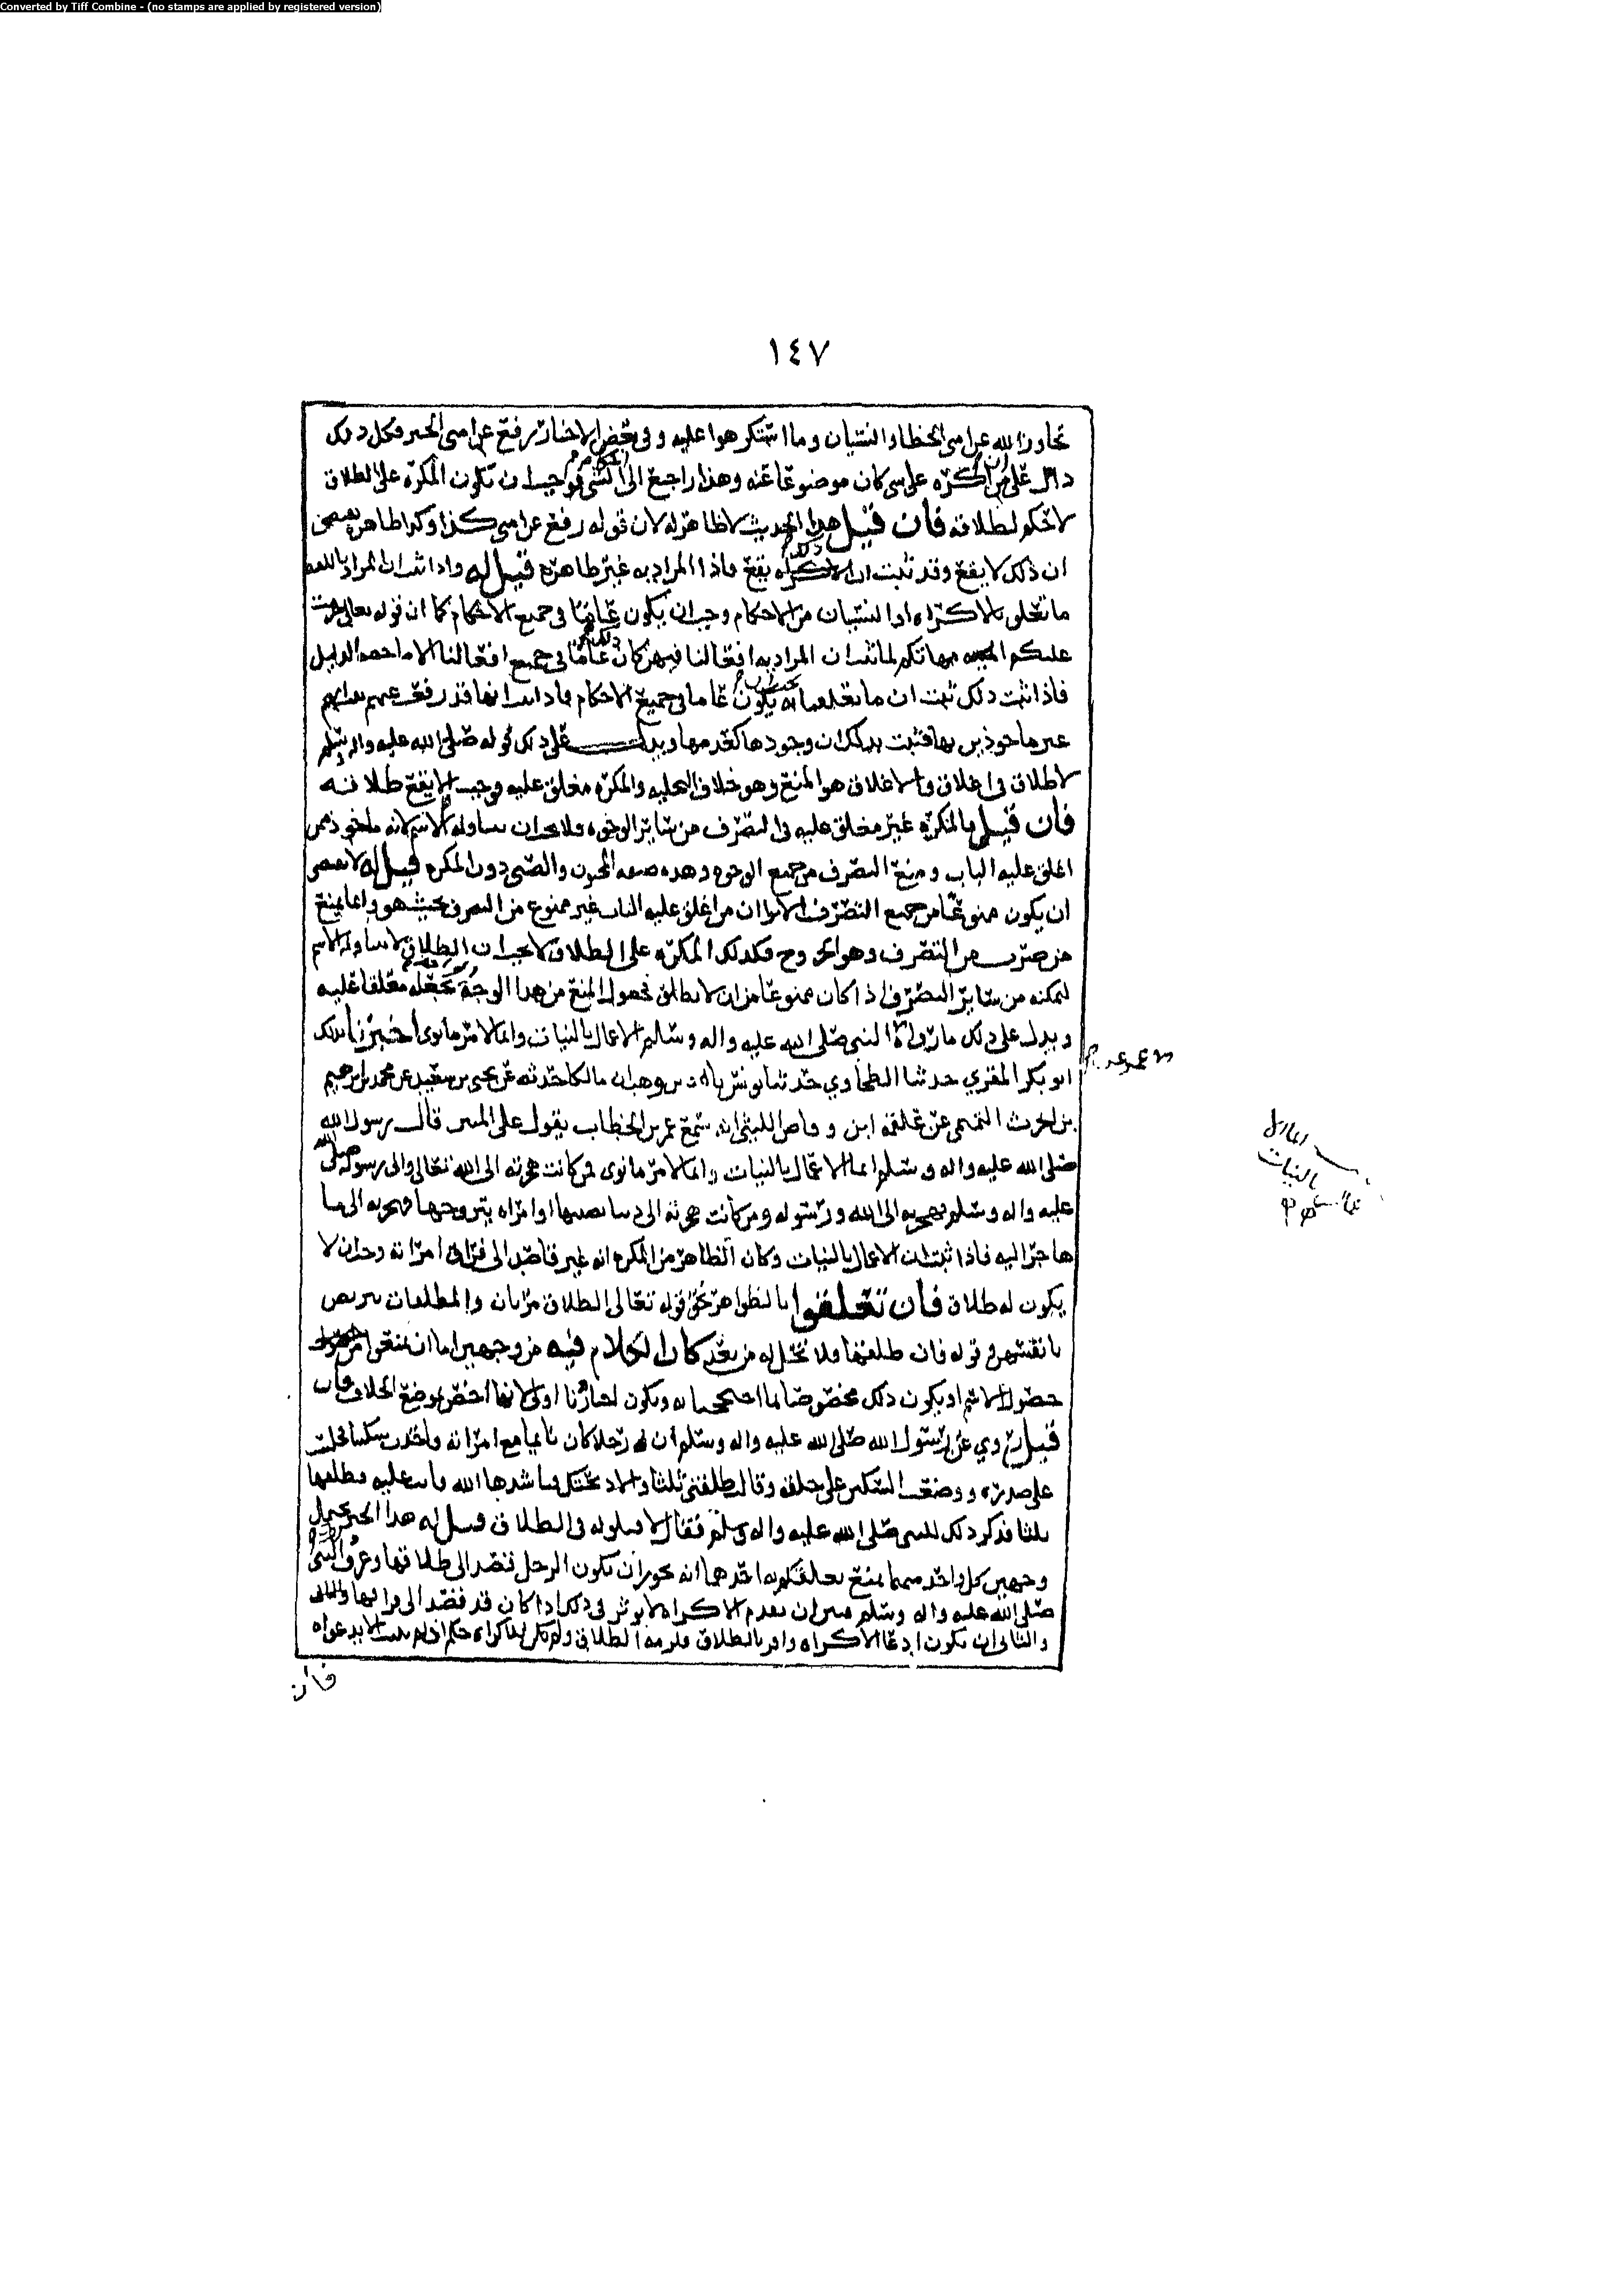 Converted by Tiff Combine - (no stamps are applied by registered version)
١٤٧
تجاوز الله عن امتي الخطا والنسيان وما استكرهوا عليه وفي بعض الاخبار رفع عن امتي الخبر فكل ذلك
دال على ان من اكره على شي كان موضوعا عنه وهذا راجع الى احكام الشي فوجب ان تكون المكره على الطلاق
لا حكم لطلاقه فان قيل هذا الحديث لا ظاهر له لان قوله رفع عن امتي كذا وكذا ظاهره يقتضي
ان ذلك لا يقع وقد ثبت ان الاكراه يقع فاذا المراد به غير ظاهره قيل له واذا ثبت ان المراد باللفظ
ما تعلق بالاكراه او النسيان من الاحكام وجب ان يكون عاما في جميع الاحكام كما ان قوله تعالى حرمت
عليكم امهاتكم لما ثبت ان المراد به افعالنا فيهن كان ذلك عاما في جميع افعالنا الا ما خصه الدليل
فاذا ثبت ذلك ثبت ان ما تعلق به يجب ان يكون عاما في جميع الاحكام فاذا ثبت انها قد رفعت عنهم
غير ماخوذين بها فثبت بذلك ان وجودها كعدمها ويدل على ذلك قوله صلى الله عليه واله وسلم
لا طلاق في اغلاق والاغلاق هو المنع وهو خلاف التخليه والمكره مغلق عليه فوجب الا يقع طلاقه
فان قيل المكره غير مغلق عليه في التصرف من سائر الوجوه فلا يجب ان يتناوله الاسم لانه ماخوذ من
اغلق عليه الباب ومنع التصرف من جميع الوجوه وهذه صفة المجنون والصبي دون المكره قيل له لا يقتضي
ان يكون ممنوعا من جميع التصرف الا ترا ان من اغلق عليه الباب غير ممنوع من التصرف بحيث هو وانما يمنع
من ضرب من التصرف وهو الخروج فكذلك المكره على الطلاق لا يجب ان لا يتناوله الاسم
لتمكنه من سائر التصرف اذا كان ممنوعا من ان لا يطلق فحصول المنع من هذا الوجه يجعله مغلقا عليه
ويدل على ذلك ما روي ان النبي صلى الله عليه واله وسلم الاعمال بالنيات وانما لامرء ما نوى اخبرنا بذلك
ابو بكر المقري حدثنا الطحاوي حدثنا يونس بن وهب ان مالكا حدثه عن يحيى بن سعيد عن محمد بن ابرهيم
بن الحرث التيمي عن علقمة ابن وقاص الليثي انه سمع عمر بن الخطاب يقول على المنبر قال رسول الله
صلى الله عليه واله وسلم انما الاعمال بالنيات وانما لامرء ما نوى فمن كانت هجرته الى الله تعالى والى رسوله صلى الله
عليه واله وسلم فهجرته الى الله ورسوله ومن كانت هجرته الى دنيا يصيبها او امراه يتزوجها فهجرته الى ما
هاجر اليه فاذا ثبت ان الاعمال بالنيات وكان الظاهر من المكره انه غير قاصد الى فراق امراته وجب ان لا
يكون له طلاق فان تعلقوا بالظواهر نحو قوله تعالى الطلاق مرتان والمطلقات يتربصن
بانفسهن وقوله فان طلقها فلا تحل له من بعد كان الكلام فيه من وجهين اما ان يمنعوا من
حصول الاسم او يكون ذلك مخصوصا بما احتججنا به وتكون اخبارنا اولى لانها اخص بموضع الخلاف فان
قيل روي عن رسول الله صلى الله عليه واله وسلم ان رجلا كان نائما مع امراته فاخذت سكينا فجلست
على صدره ووضعت السكين على حلقه وقالت طلقني ثلثا والا ذبحتك فناشدها الله فابت عليه فطلقها
ثلثا فذكر ذلك للنبي صلى الله عليه واله وسلم فقال لا قيلوله في الطلاق قيل له هذا الخبر يحتمل
وجهين كل واحد منهما يمنع تعلقكم به احدهما انه يجوز ان تكون الرجل قصد الى طلاقها وعرف النبي
صلى الله عليه واله وسلم ان تقدم الاكراه لا يوثر في ذلك اذا كان قد قصد الى فراقها
والثاني ان تكون ادعا الاكراه واقر بالطلاق فلزمه الطلاق ولم يكن للاكراه حكم اذ لم يثبت الا بدعواه
فان
بالنيات